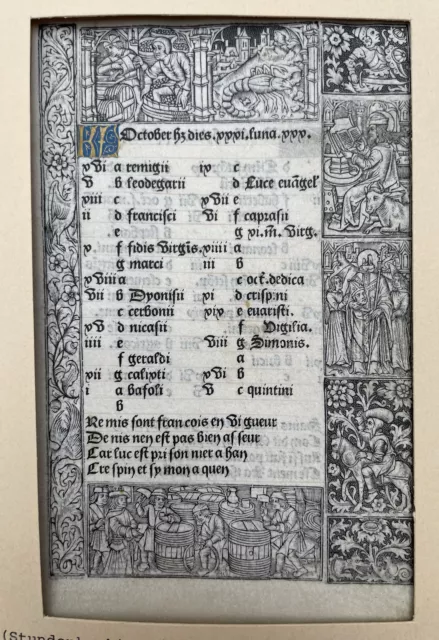 KL October hz dies .xxxi. luna .xxx.
xvi a remigii
v b leodegarii
xiii c
ii d francisci
e
x f fidis virgis.
g marci
xviii a
vii b Dyonisii
c cerbonii
xv d nicasii
iiii e
f geraldi
xii g calixti
i a bafoli
b
ix c
d Luce euāgel
xvii e
vi f caprasii
g xi.m. Virg.
xiiii a
iii b
c oct. dedica
xi d crispini
xix e euaristi.
f Vigilia.
viii g Simonis.
a
xvi b
v c quintini
Re mis sont fran cois en vi gueur
De nis nen est pas bien af seur
Car luc est pri son nier a han
Cre spin et sy mon a quen
(Stundenb